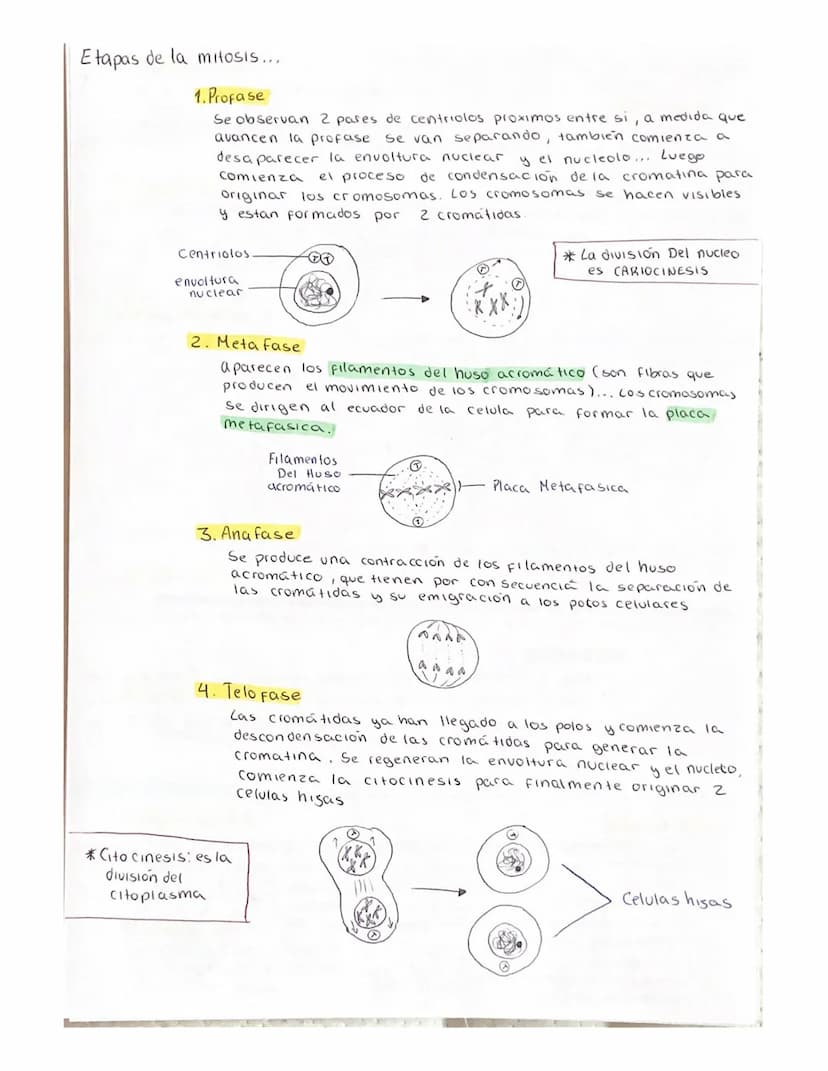 Etapas de la mitosis...
1. Profase
Se observan 2 pares de centriolos proximos entre si, a medida que
avancen la profase se van separando, también comienza a
desaparecer la envoltura nuclear y el nucleolo... Luego
comienza el proceso de condensación de la cromatina para
originar los cromosomas. Los cromosomas se hacen visibles
y estan formados por 2 cromátidas.
Centriolos
envoltura
nuclear
* La división Del nucleo
es CARIOCINESIS
2. Metafase
aparecen los filamentos del huso acromático (son fibras que
producen el movimiento de los cromosomas)... Los cromosomas
se dirigen al ecuador de la celula para formar la placa
metafasica.
Filamentos
Del Huso
acromático
Placa Metafasica
3. Anafase
Se produce una contracción de los filamentos del huso
acromático, que tienen por consecuencia la separación de
las cromátidas y su emigración a los polos celulares
4. Telofase
Las cromátidas ya han llegado a los polos y comienza la
descondensación de las cromátidas para generar la
cromatina. Se regeneran la envoltura nuclear y el nucleto,
comienza la citocinesis para finalmente originar 2
celulas hijas
* Citocinesis: es la
división del
citoplasma
Celulas hijas